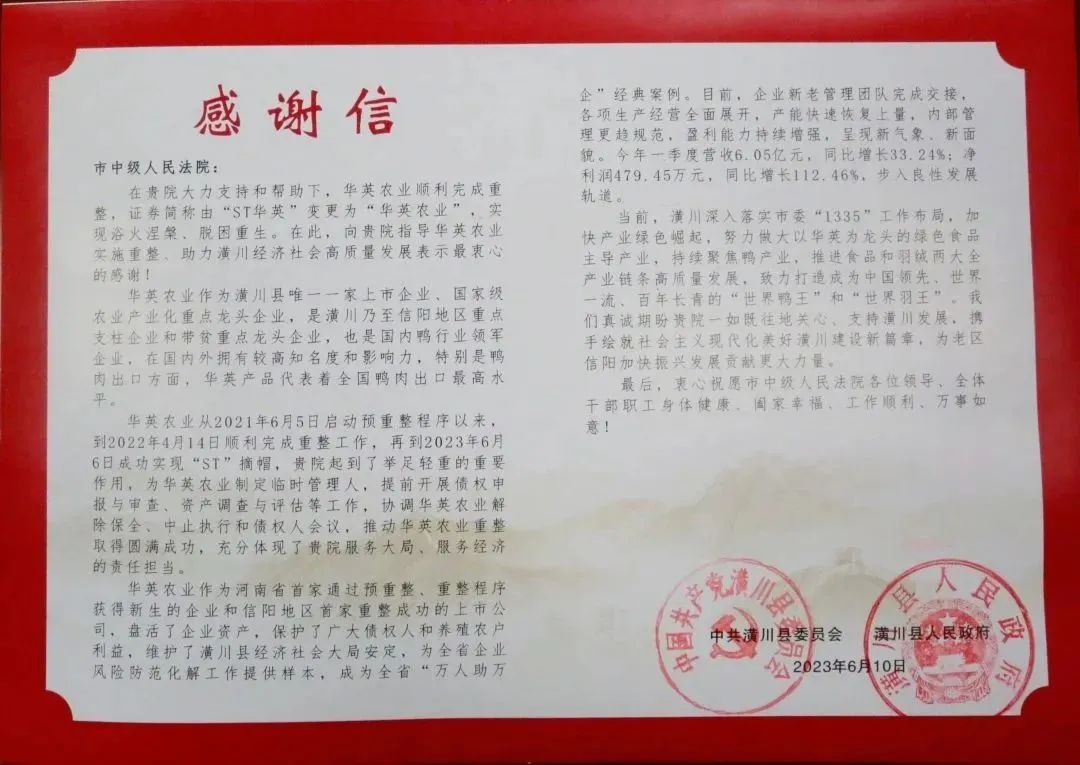 感谢信
市中级人民法院：
在贵院大力支持和帮助下，华英农业顺利完成重
整，证券简称由“ST华英”变更为“华英农业”，实
现浴火涅槃、脱困重生。在此，向贵院指导华英农业
实施重整、助力潢川经济社会高质量发展表示最衷心
的感谢！
华英农业作为潢川县唯一一家上市企业、国家级
农业产业化重点龙头企业，是潢川乃至信阳地区重点
支柱企业和带贫重点龙头企业，也是国内鸭行业领军
企业，在国内外拥有较高知名度和影响力，特别是鸭
肉出口方面，华英产品代表着全国鸭肉出口最高水
平。
华英农业从2021年6月5日启动预重整程序以来，
到2022年4月14日顺利完成重整工作，再到2023年6月
6日成功实现“ST”摘帽，贵院起到了举足轻重的重要
作用，为华英农业制定临时管理人，提前开展债权申
报与审查、资产调查与评估等工作，协调华英农业解
除保全、中止执行和债权人会议，推动华英农业重整
取得圆满成功，充分体现了贵院服务大局、服务经济
的责任担当。
华英农业作为河南省首家通过预重整、重整程序
获得新生的企业和信阳地区首家重整成功的上市公
司，盘活了企业资产，保护了广大债权人和养殖农户
利益，维护了潢川县经济社会大局安定，为全省企业
风险防范化解工作提供样本，成为全省“万人助万
企”经典案例。目前，企业新老管理团队完成交接，
各项生产经营全面展开，产能快速恢复上量，内部管
理更趋规范，盈利能力持续增强，呈现新气象、新面
貌。今年一季度营收6.05亿元，同比增长33.24%；净
利润479.45万元，同比增长112.46%，步入良性发展
轨道。
当前，潢川深入落实市委“1335”工作布局，加
快产业绿色崛起，努力做大以华英为龙头的绿色食品
主导产业，持续聚焦鸭产业，推进食品和羽绒两大全
产业链条高质量发展，致力打造成为中国领先、世界
一流、百年长青的“世界鸭王”和“世界羽王”。我
们真诚期盼贵院一如既往地关心、支持潢川发展，携
手绘就社会主义现代化美好潢川建设新篇章，为老区
信阳加快振兴发展贡献更大力量。
最后，衷心祝愿市中级人民法院各位领导、全体
干部职工身体健康、阖家幸福、工作顺利、万事如
意！
中国共产党潢川县委员会
潢川县人民政府
中共潢川县委员会 潢川县人民政府
2023年6月10日